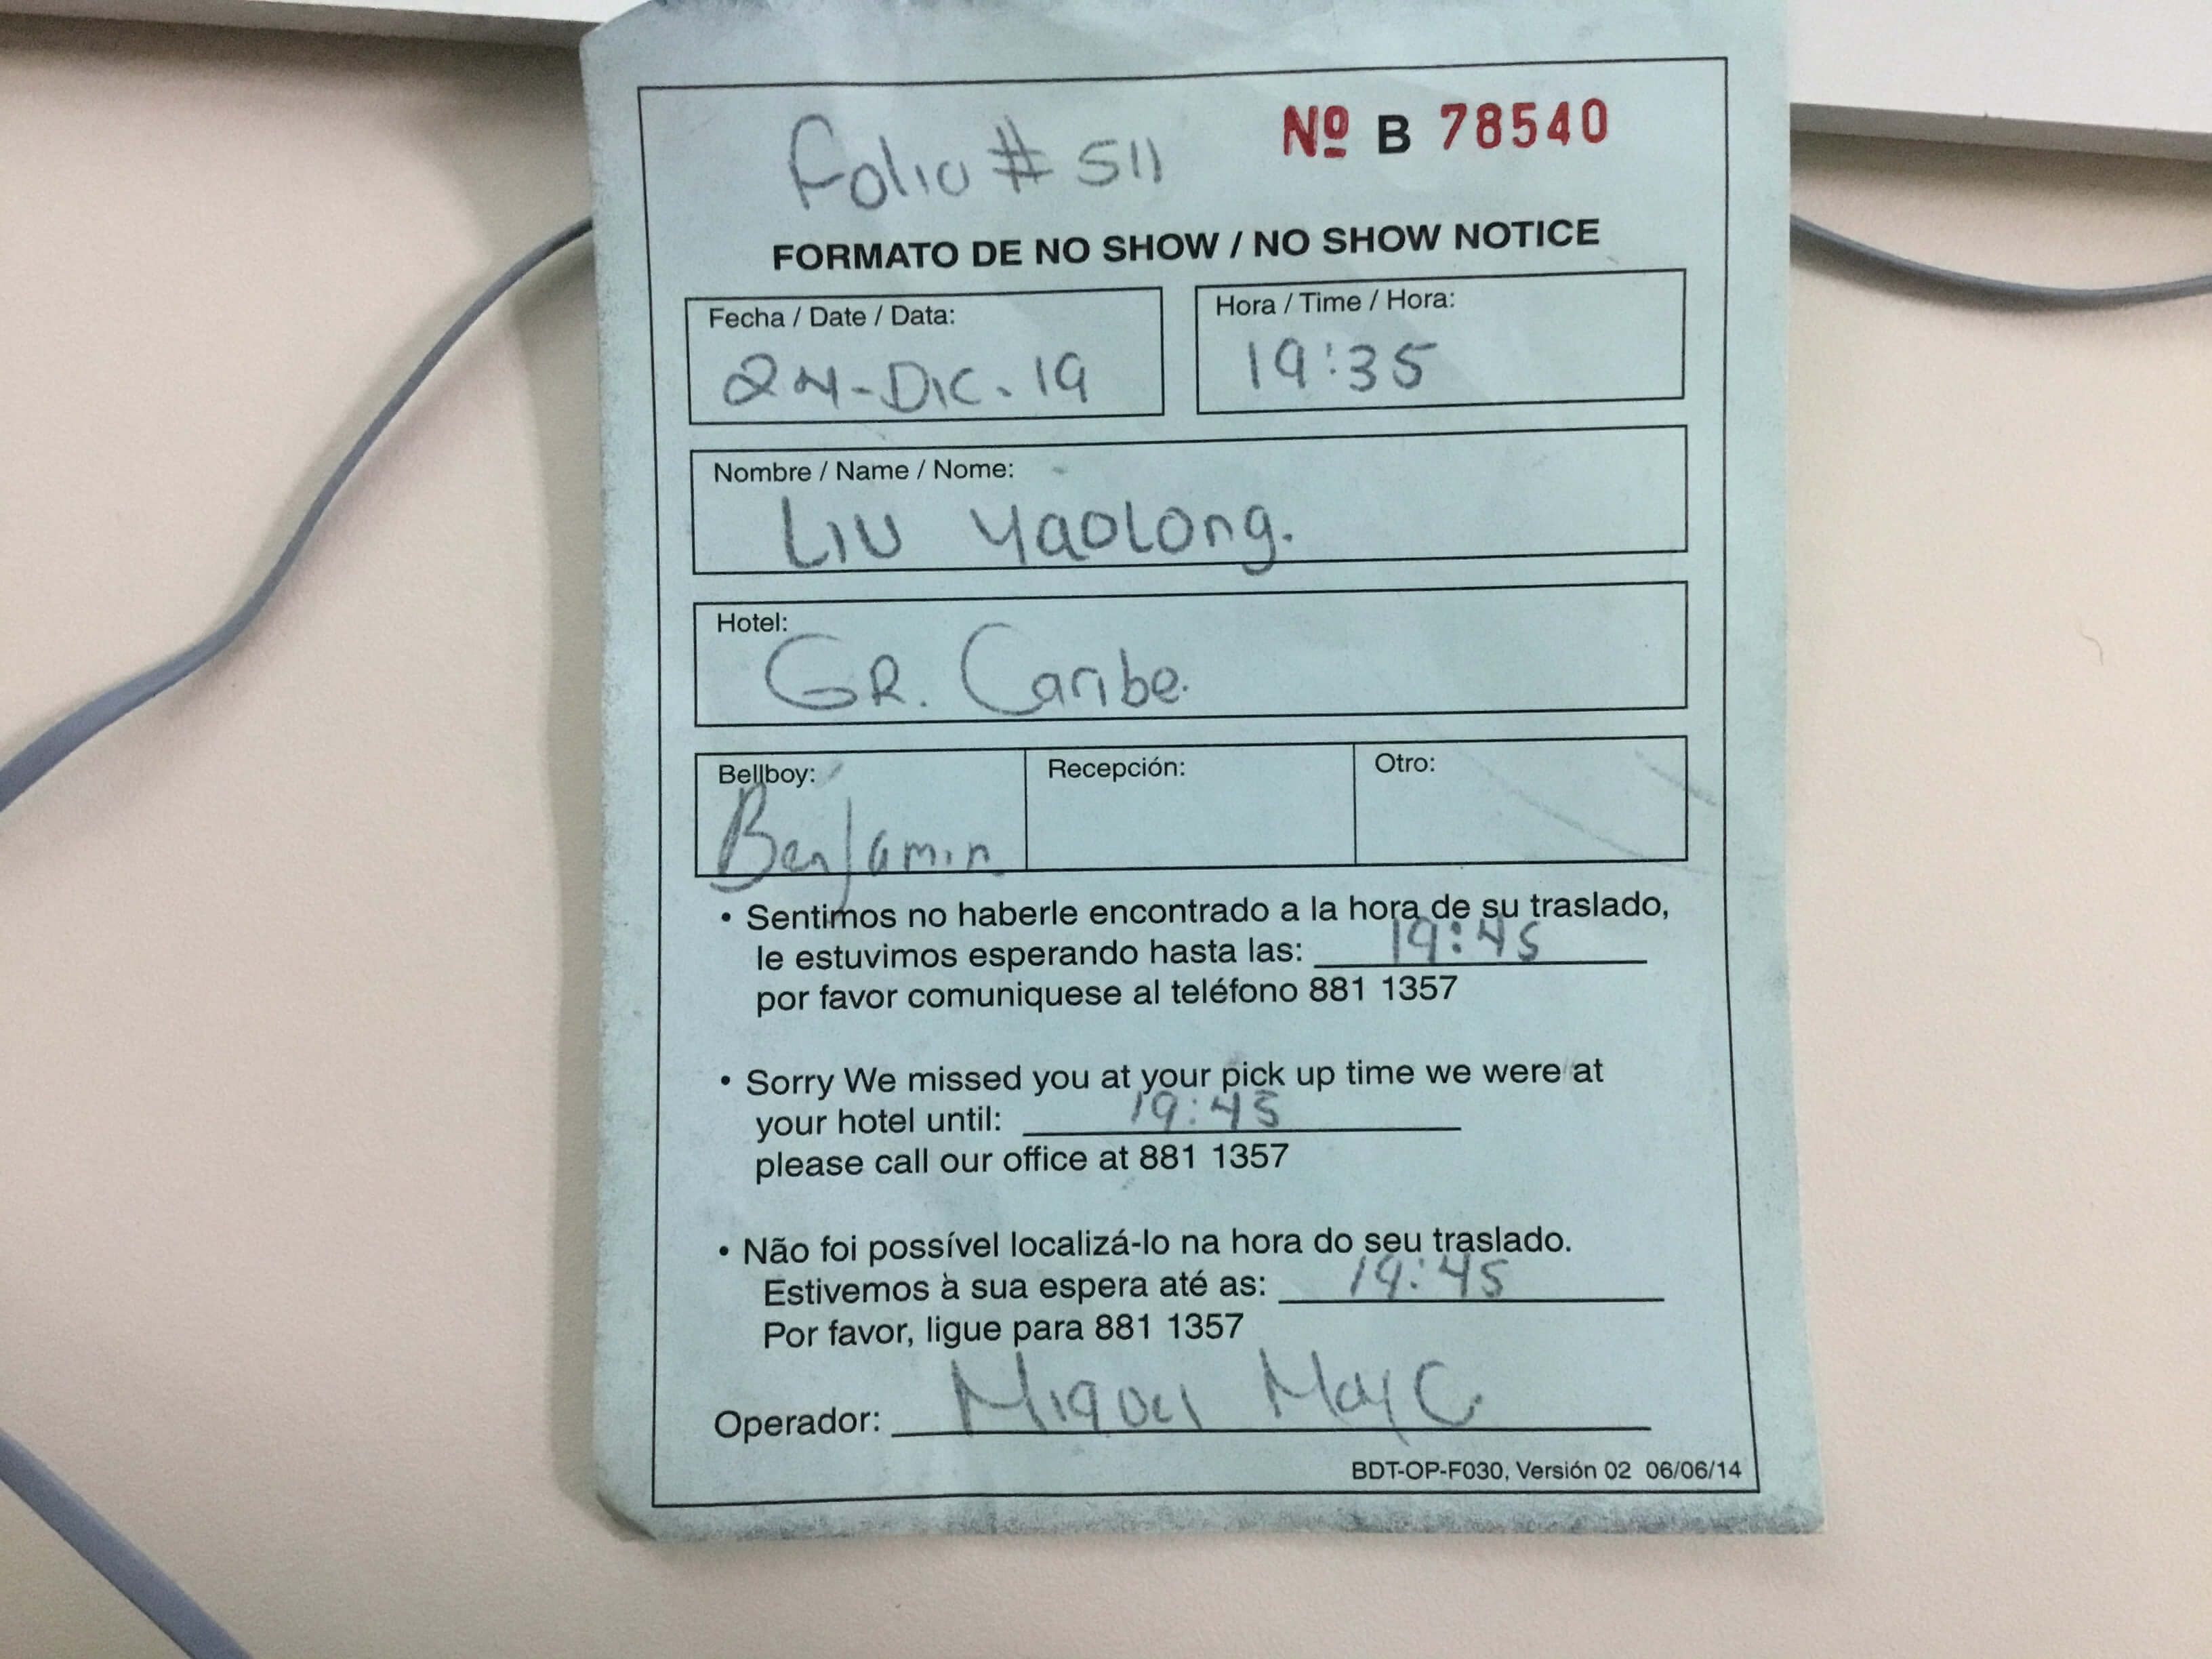 Folio # 511
Nº B 78540
FORMATO DE NO SHOW / NO SHOW NOTICE
Fecha / Date / Data:
24-DIC.19
Hora / Time / Hora:
19:35
Nombre / Name / Nome:
LIU YaoLong.
Hotel:
GR. Caribe.
Bellboy:
Benjamin
Recepción:
Otro:
• Sentimos no haberle encontrado a la hora de su traslado,
le estuvimos esperando hasta las: 19:45
por favor comuniquese al teléfono 881 1357
• Sorry We missed you at your pick up time we were at
your hotel until: 19:45
please call our office at 881 1357
• Não foi possível localizá-lo na hora do seu traslado.
Estivemos à sua espera até as: 19:45
Por favor, ligue para 881 1357
Operador: Miguel May C.
BDT-OP-F030, Versión 02 06/06/14